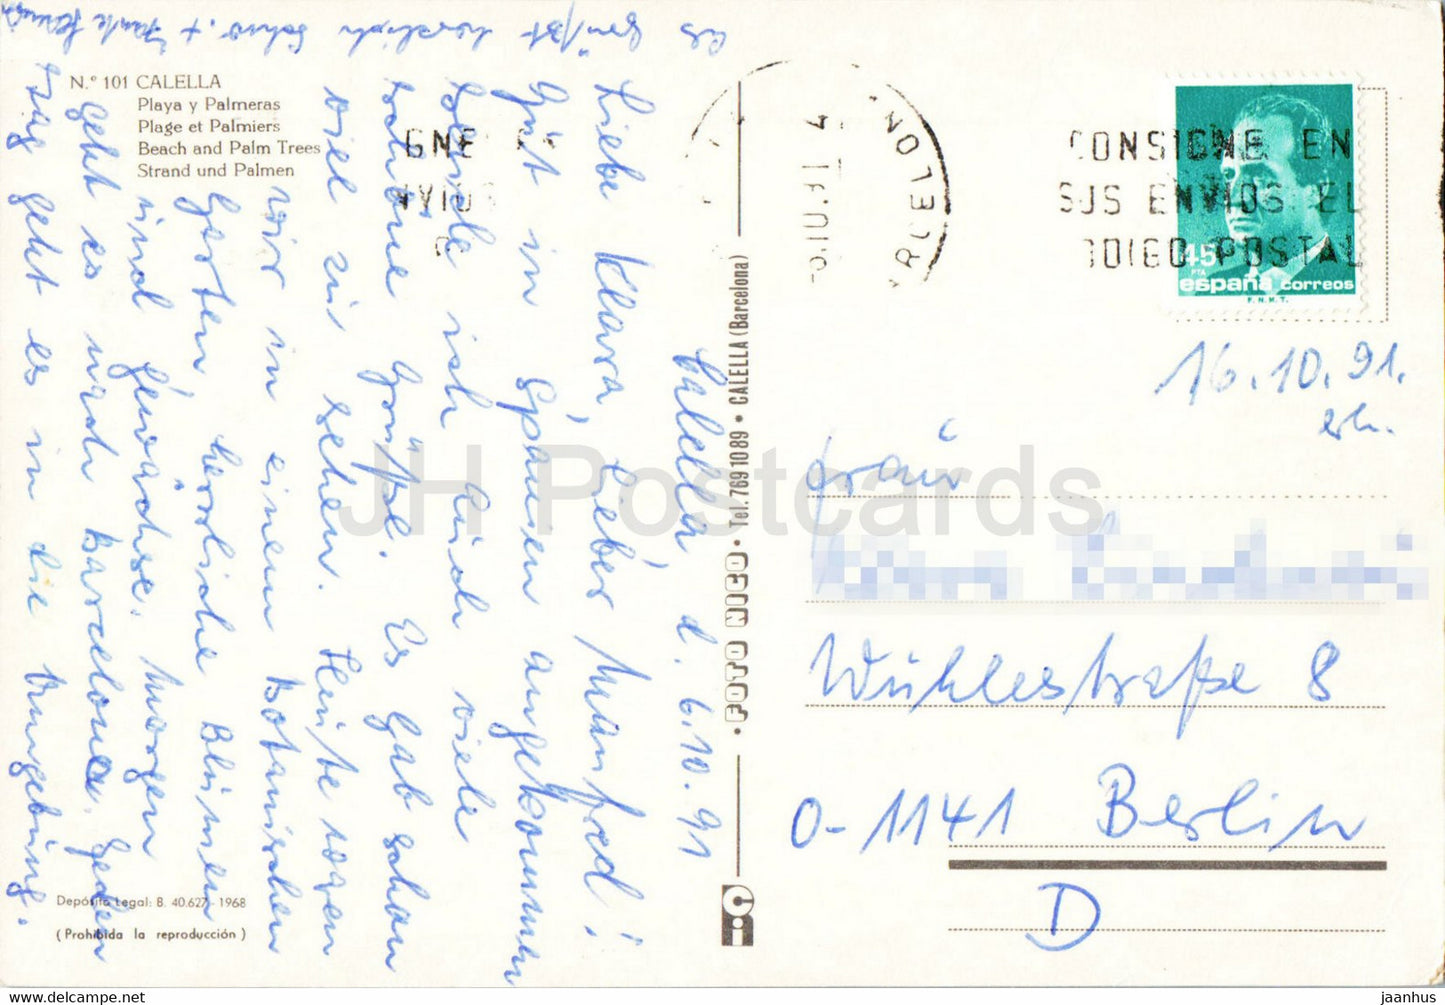 N.º 101 CALELLA
Playa y Palmeras
Plage et Palmiers
Beach and Palm Trees
Strand und Palmen
Calella, d. 6.10.91
Liebe Klara, lieber Manfred!
Gut in Spanien angekommen
sende ich Euch viele
schöne Grüße. Es gab schon
viel zu sehen. Heute waren
wir in einem Botanischen
Garten, herrliche Blumen
und Gewächse. Morgen
geht es nach Barcelona. Jeden
Tag geht es in die Umgebung.
Es grüßt herzlich
+ Tante
Depósito Legal: B. 40.627 - 1968
(Prohibida la reproducción)
• FOTO NICO • Tel. 7691089 • CALELLA (Barcelona)
CONSIGNE EN
SUS ENVIOS EL
CODIGO POSTAL
GNE
NVIOS
45
PTA
españa correos
F.N.M.T.
16.10.91.
erh.
Frau
Wuhlestraße 8
O-1141 Berlin
D
JH Postcards
jaanhus.com
jaanhus